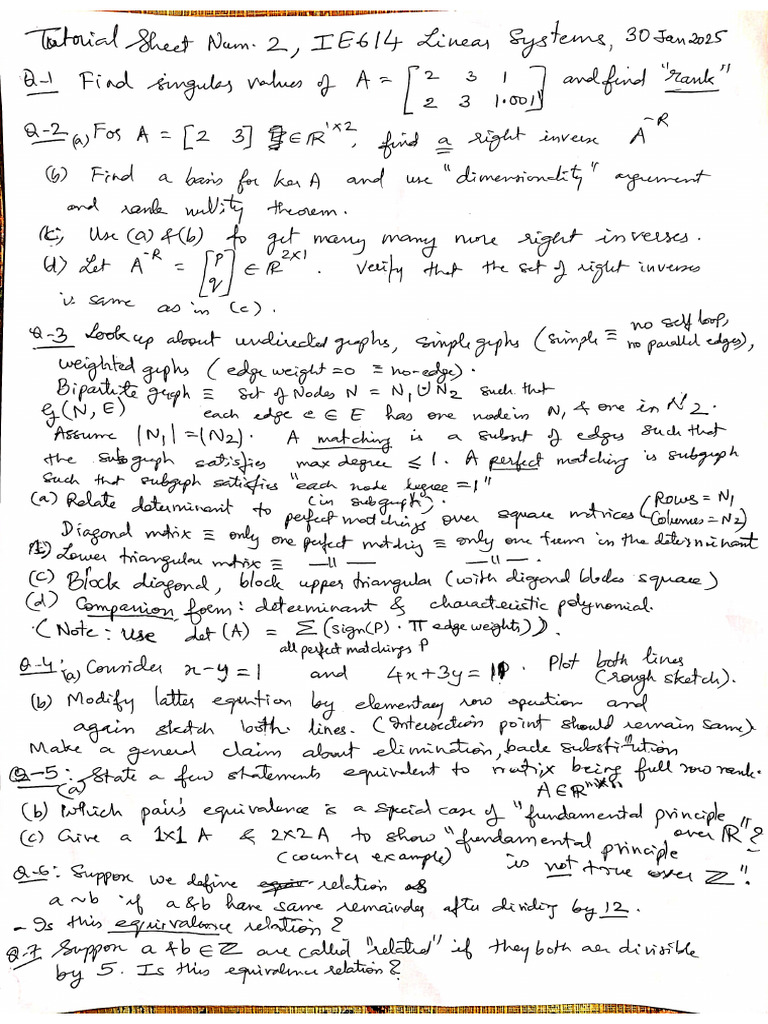 Tutorial Sheet Num. 2, IE614 Linear Systems, 30 Jan 2025
Q-1 Find singular values of A = [2 3 1 and find "rank"
2 3 1.001]
Q-2 (a) For A = [2 3] ∈ ℝ^1×2, find a right inverse A^-R
(b) Find a basis for ker A and use "dimensionality" argument
and rank nullity theorem.
(c) Use (a) & (b) to get many many more right inverses.
(d) Let A^-R = [p q] ∈ ℝ^2×1. Verify that the set of right inverses
is same as in (c).
Q-3 Look up about undirected graphs, simple gphs (simple ≡ no self loop, no parallel edges),
weighted gphs (edge weight = 0 ≡ no-edge).
Bipartite graph ≡ Set of Nodes N = N1 ∪ N2 such tht
G(N, E) each edge e ∈ E has one node in N1 & one in N2.
Assume |N1| = |N2|. A matching is a subset of edges such that
the subgraph satisfies max degree ≤ 1. A perfect matching is subgraph
such tht subgraph satisfies "each node degree = 1"
(in subgraph).
(a) Relate determinant to perfect matchings over square matrices (Rows = N1
Columns = N2)
Diagonal mtrix ≡ only one perfect mtching ≡ only one term in the determinant
(b) Lower triangular mtrix ≡ —11— —11—.
(c) Block diagonal, block upper triangular (with diagonal blocks square)
(d) Companion form: determinant & characteristic polynomial.
(Note: use det (A) = Σ (sign(P) · Π edge weights)).
all perfect matchings P
Q-4: (a) Consider x-y = 1 and 4x+3y = 11. Plot both lines
(rough sketch).
(b) Modify latter equation by elementary row operation and
again sketch both lines. (Intersection point should remain same).
Make a general claim about elimination, back substitution
Q-5: (a) State a few statements equivalent to matrix being full row rank.
(b) Which pair's equivalence is a special case of "fundamental principle
over ℝ"?
(c) Give a 1x1 A & 2x2 A to show "fundamental principle
(counter example) is not true over ℤ".
Q-6: Suppose we define relation as
a ~ b if a & b have same remainder after dividing by 12.
- Is this equivalence relation?
Q-7 Suppose a & b ∈ ℤ are called "related" if they both are divisible
by 5. Is this equivalence relation?